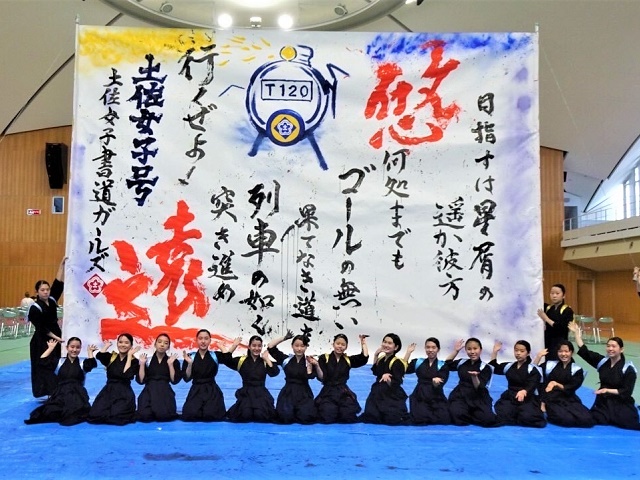 悠遠
目指すは星屑の
遥か彼方
何処までも
ゴールの無い
果てなき道を
列車の如く
突き進め
T120
行くぜよ!
土佐女子号
土佐女子書道ガールズ